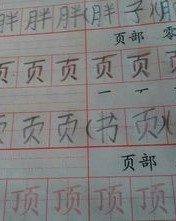 胖胖胖(胖子)(胖
页部 零
页页页页页页
页页页(书页)(
页部
顶顶顶顶